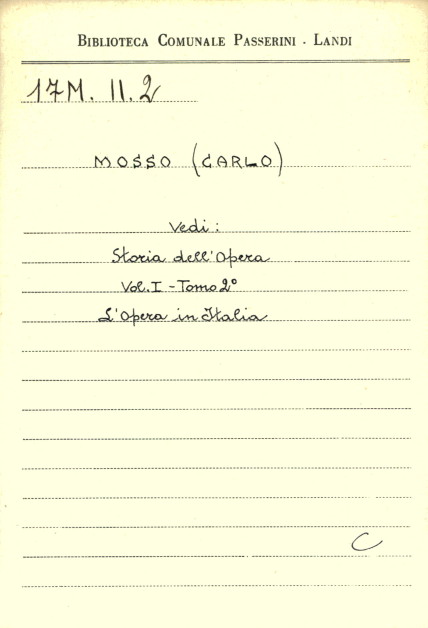 BIBLIOTECA COMUNALE PASSERINI - LANDI
17M. II.2
MOSSO (CARLO)
Vedi:
Storia dell'Opera
Vol. I - Tomo 2°
L'Opera in Italia
C